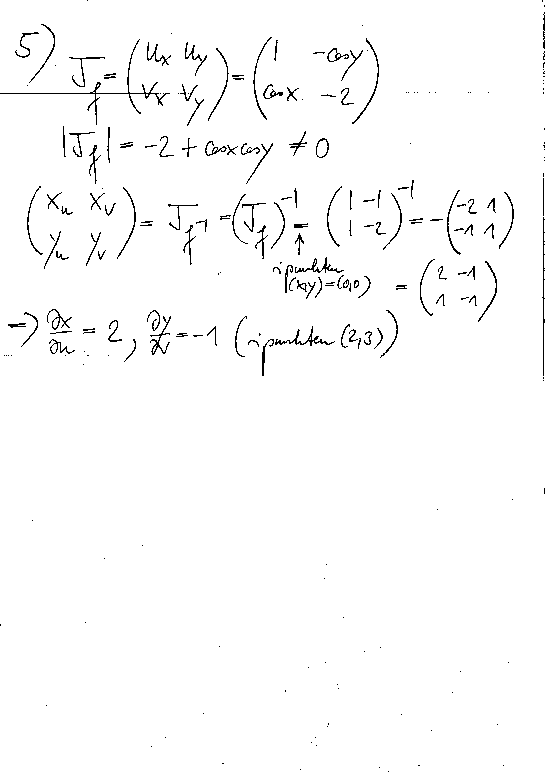 5) J_f = (u_x u_y; v_x v_y) = (1 -cosy; cosx -2)
|J_f| = -2 + cosxcosy ≠ 0
(x_u x_v; y_u y_v) = J_f⁻¹ = (J_f)⁻¹ = (1 -1; 1 -2)⁻¹ = -(-2 1; -1 1)
↑ i punkten (x,y)=(0,0) = (2 -1; 1 -1)
=> ∂x/∂u = 2, ∂y/∂v = -1 (i punkten (2,3))